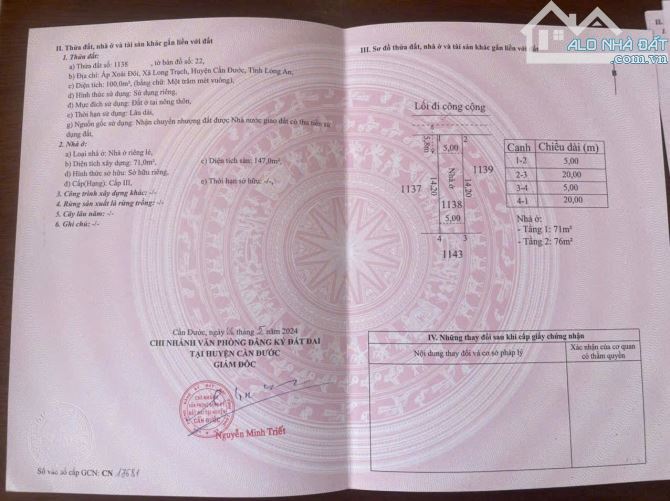 ALO NHÀ ĐẤT
II. Thửa đất, nhà ở và tài sản khác gắn liền với đất
1. Thửa đất:
a) Thửa đất số: 1138 , tờ bản đồ số: 22,
b) Địa chỉ: Ấp Xoài Đôi, Xã Long Trạch, Huyện Cần Đước, Tỉnh Long An,
c) Diện tích: 100,0m², (bằng chữ: Một trăm mét vuông),
d) Hình thức sử dụng: Sử dụng riêng,
đ) Mục đích sử dụng: Đất ở tại nông thôn,
e) Thời hạn sử dụng: Lâu dài,
g) Nguồn gốc sử dụng: Nhận chuyển nhượng đất được Nhà nước giao đất có thu tiền sử
dụng đất,
2. Nhà ở:
a) Loại nhà ở: Nhà ở riêng lẻ,
b) Diện tích xây dựng: 71,0m², c) Diện tích sàn: 147,0m²,
d) Hình thức sở hữu: Sở hữu riêng,
đ) Cấp(Hạng): Cấp III, e) Thời hạn sở hữu: -/-,
3. Công trình xây dựng khác: -/-
4. Rừng sản xuất là rừng trồng: -/-
5. Cây lâu năm: -/-
6. Ghi chú: -/-
Cần Đước, ngày tháng 5 năm 2024
CHI NHÁNH VĂN PHÒNG ĐĂNG KÝ ĐẤT ĐAI
TẠI HUYỆN CẦN ĐƯỚC
GIÁM ĐỐC
CHI NHÁNH
VĂN PHÒNG ĐĂNG KÝ
ĐẤT ĐAI TẠI HUYỆN
CẦN ĐƯỚC
Nguyễn Minh Triết
Số vào sổ cấp GCN: CN 17681
III. Sơ đồ thửa đất, nhà ở và tài sản khác gắn liền với đất
Lối đi công cộng
5,8m
5,00
1139
1137
14,20
Nhà ở
14,20
1138
5,00
4 3
1143
Cạnh Chiều dài (m)
1-2 5,00
2-3 20,00
3-4 5,00
4-1 20,00
Nhà ở:
- Tầng 1: 71m²
- Tầng 2: 76m²
IV. Những thay đổi sau khi cấp giấy chứng nhận
Nội dung thay đổi và cơ sở pháp lý
Xác nhận của cơ quan
có thẩm quyền